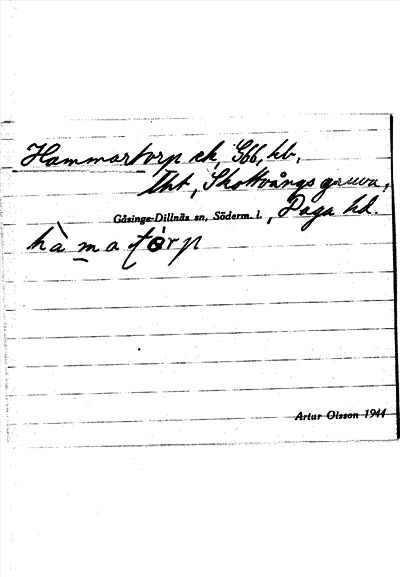 Hammartorp ek, S66, hb,
tht, Skottvångs gruva,
Gåsinge-Dillnäs sn, Söderm. l., Daga hd.
hàmatórp
Artur Olsson 1944